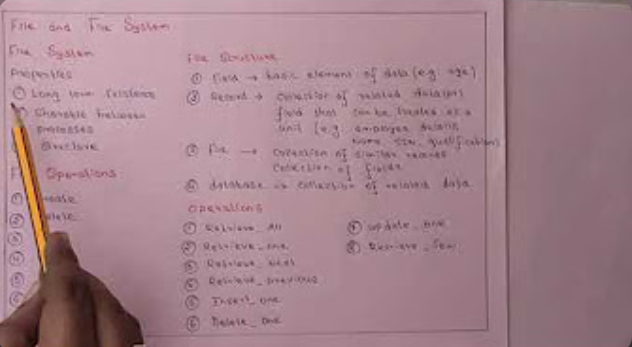 File and File System
File System
Properties
① Long term existence
Sharable between
processes
Structure
Operations
①
②
③
④
⑤
File Structure
① Field → basic element of data (e.g. age)
② Record → collection of related data(or)
field that can be treated as a
unit (e.g. employee details
name, size, qualification)
③ File → collection of similar records
collection of fields
④ database → collection of related data
Operations
① Retrieve_All
② Retrieve_one
③ Retrieve_next
④ Retrieve_previous
⑤ Insert_one
⑥ Delete_one
⑦ update_one
⑧ Retrieve_few